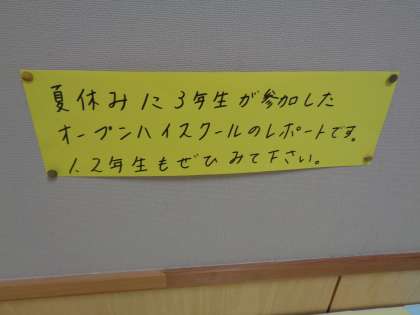 夏休みに3年生が参加した
オープンハイスクールのレポートです。
1.2年生もぜひみて下さい。